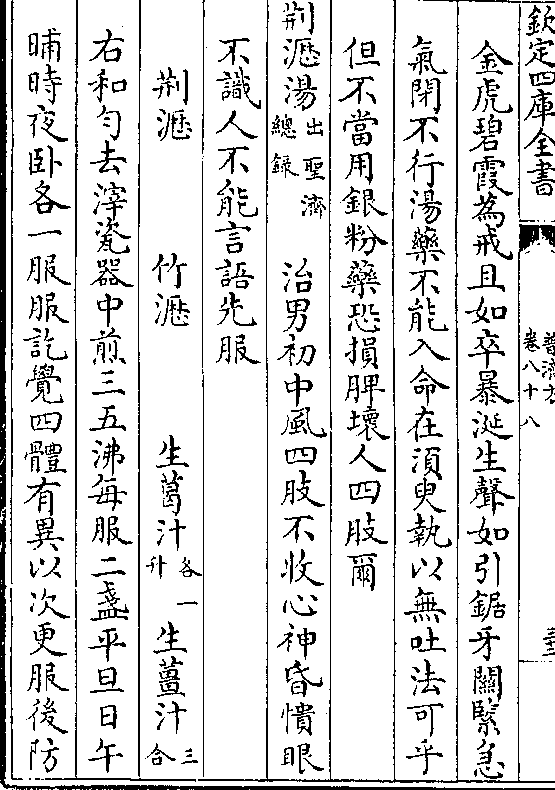 欽定四庫全書
普濟方
卷八十八
金虎碧霞為戒且如卒暴涎生聲如引鋸牙關緊急
氣閉不行湯藥不能入命在須臾執以無吐法可乎
但不當用銀粉藥恐損脾壞人四肢爾
荆瀝湯出聖濟總錄 治男初中風四肢不收心神昏憒眼
不識人不能言語先服
荆瀝 竹瀝 生葛汁各一升 生薑汁三合
右和勻去滓瓷器中煎三五沸每服二盞平旦日午
晡時夜卧各一服服訖覺四體有異以次更服後防